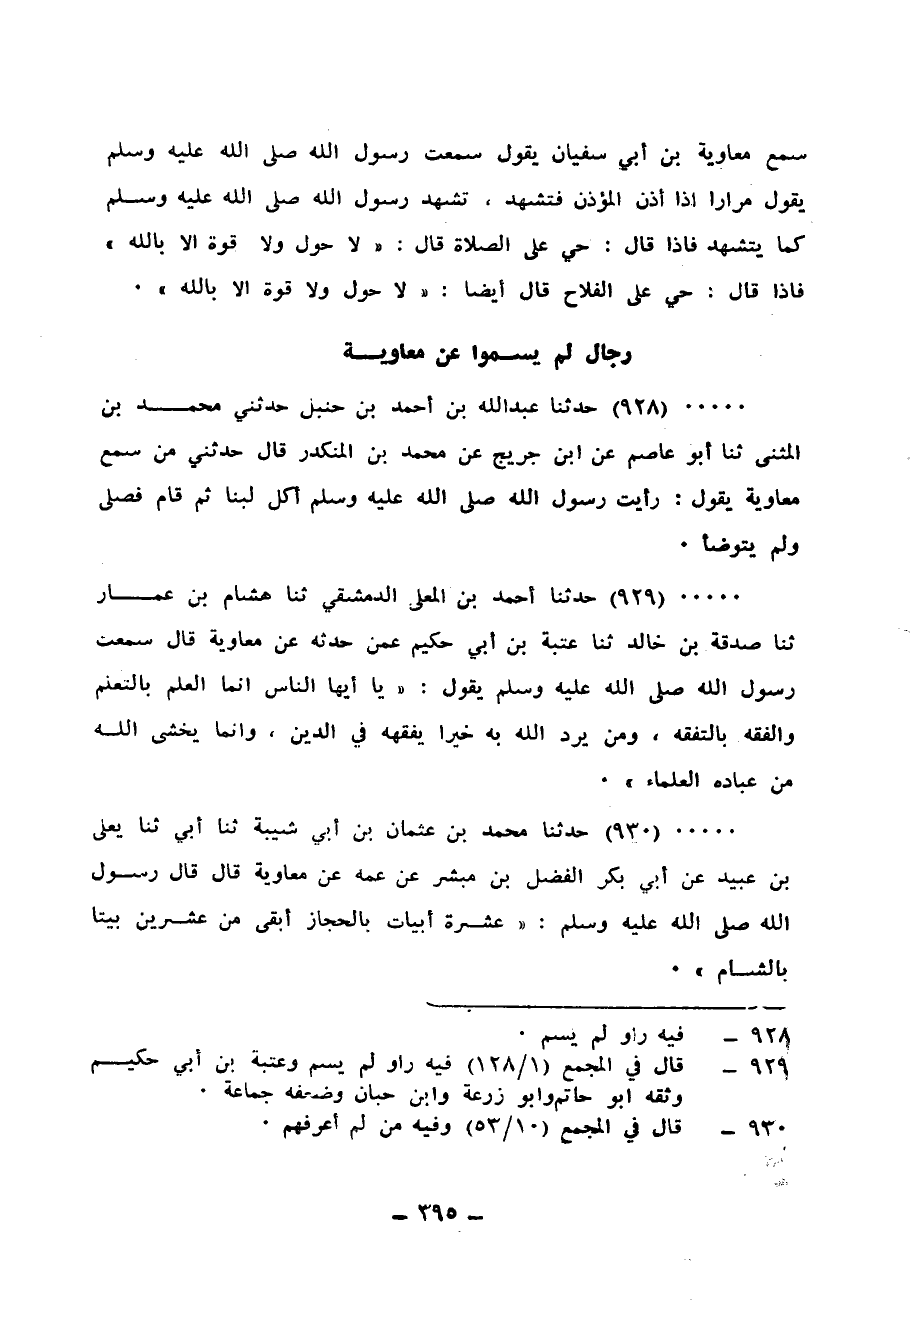 سمع معاوية بن أبي سفيان يقول سمعت رسول الله صلى الله عليه وسلم
يقول مرارا اذا أذن المؤذن فتشهد ، تشهد رسول الله صلى الله عليه وسـلم
كما يتشهد فاذا قال : حي على الصلاة قال : « لا حول ولا قوة الا بالله »
فاذا قال : حي على الفلاح قال أيضا : « لا حول ولا قوة الا بالله » ٠
رجال لم يسـموا عن معاويـة
٠٠٠٠٠ (٩٢٨) حدثنا عبدالله بن أحمد بن حنبل حدثني محمـــد بن
المثنى ثنا أبو عاصم عن ابن جريج عن محمد بن المنكدر قال حدثني من سمع
معاوية يقول : رأيت رسول الله صلى الله عليه وسلم أكل لبنا ثم قام فصلى
ولم يتوضأ ٠
٠٠٠٠٠ (٩٢٩) حدثنا أحمد بن المعلى الدمشقي ثنا هشام بن عمـــار
ثنا صدقة بن خالد ثنا عتبة بن أبي حكيم عمن حدثه عن معاوية قال سمعت
رسول الله صلى الله عليه وسلم يقول : « يا أيها الناس انما العلم بالتعلم
والفقه بالتفقه ، ومن يرد الله به خيرا يفقهه في الدين ، وانما يخشى اللـه
من عباده العلماء » ٠
٠٠٠٠٠ (٩٣٠) حدثنا محمد بن عثمان بن أبي شيبة ثنا أبي ثنا يعلى
بن عبيد عن أبي بكر الفضل بن مبشر عن عمه عن معاوية قال قال رسـول
الله صلى الله عليه وسلم : « عشـرة أبيات بالحجاز أبقى من عشـرين بيتا
بالشـام » ٠
٩٢٨ ـ فيه راو لم يسم ٠
٩٢٩ ـ قال في المجمع (١٢٨/١) فيه راو لم يسم وعتبة بن أبي حكيـم
وثقه ابو حاتم وابو زرعة وابن حبان وضعفه جماعة ٠
٩٣٠ ـ قال في المجمع (٥٣/١٠) وفيه من لم أعرفهم ٠
ـ ٣٩٥ ـ